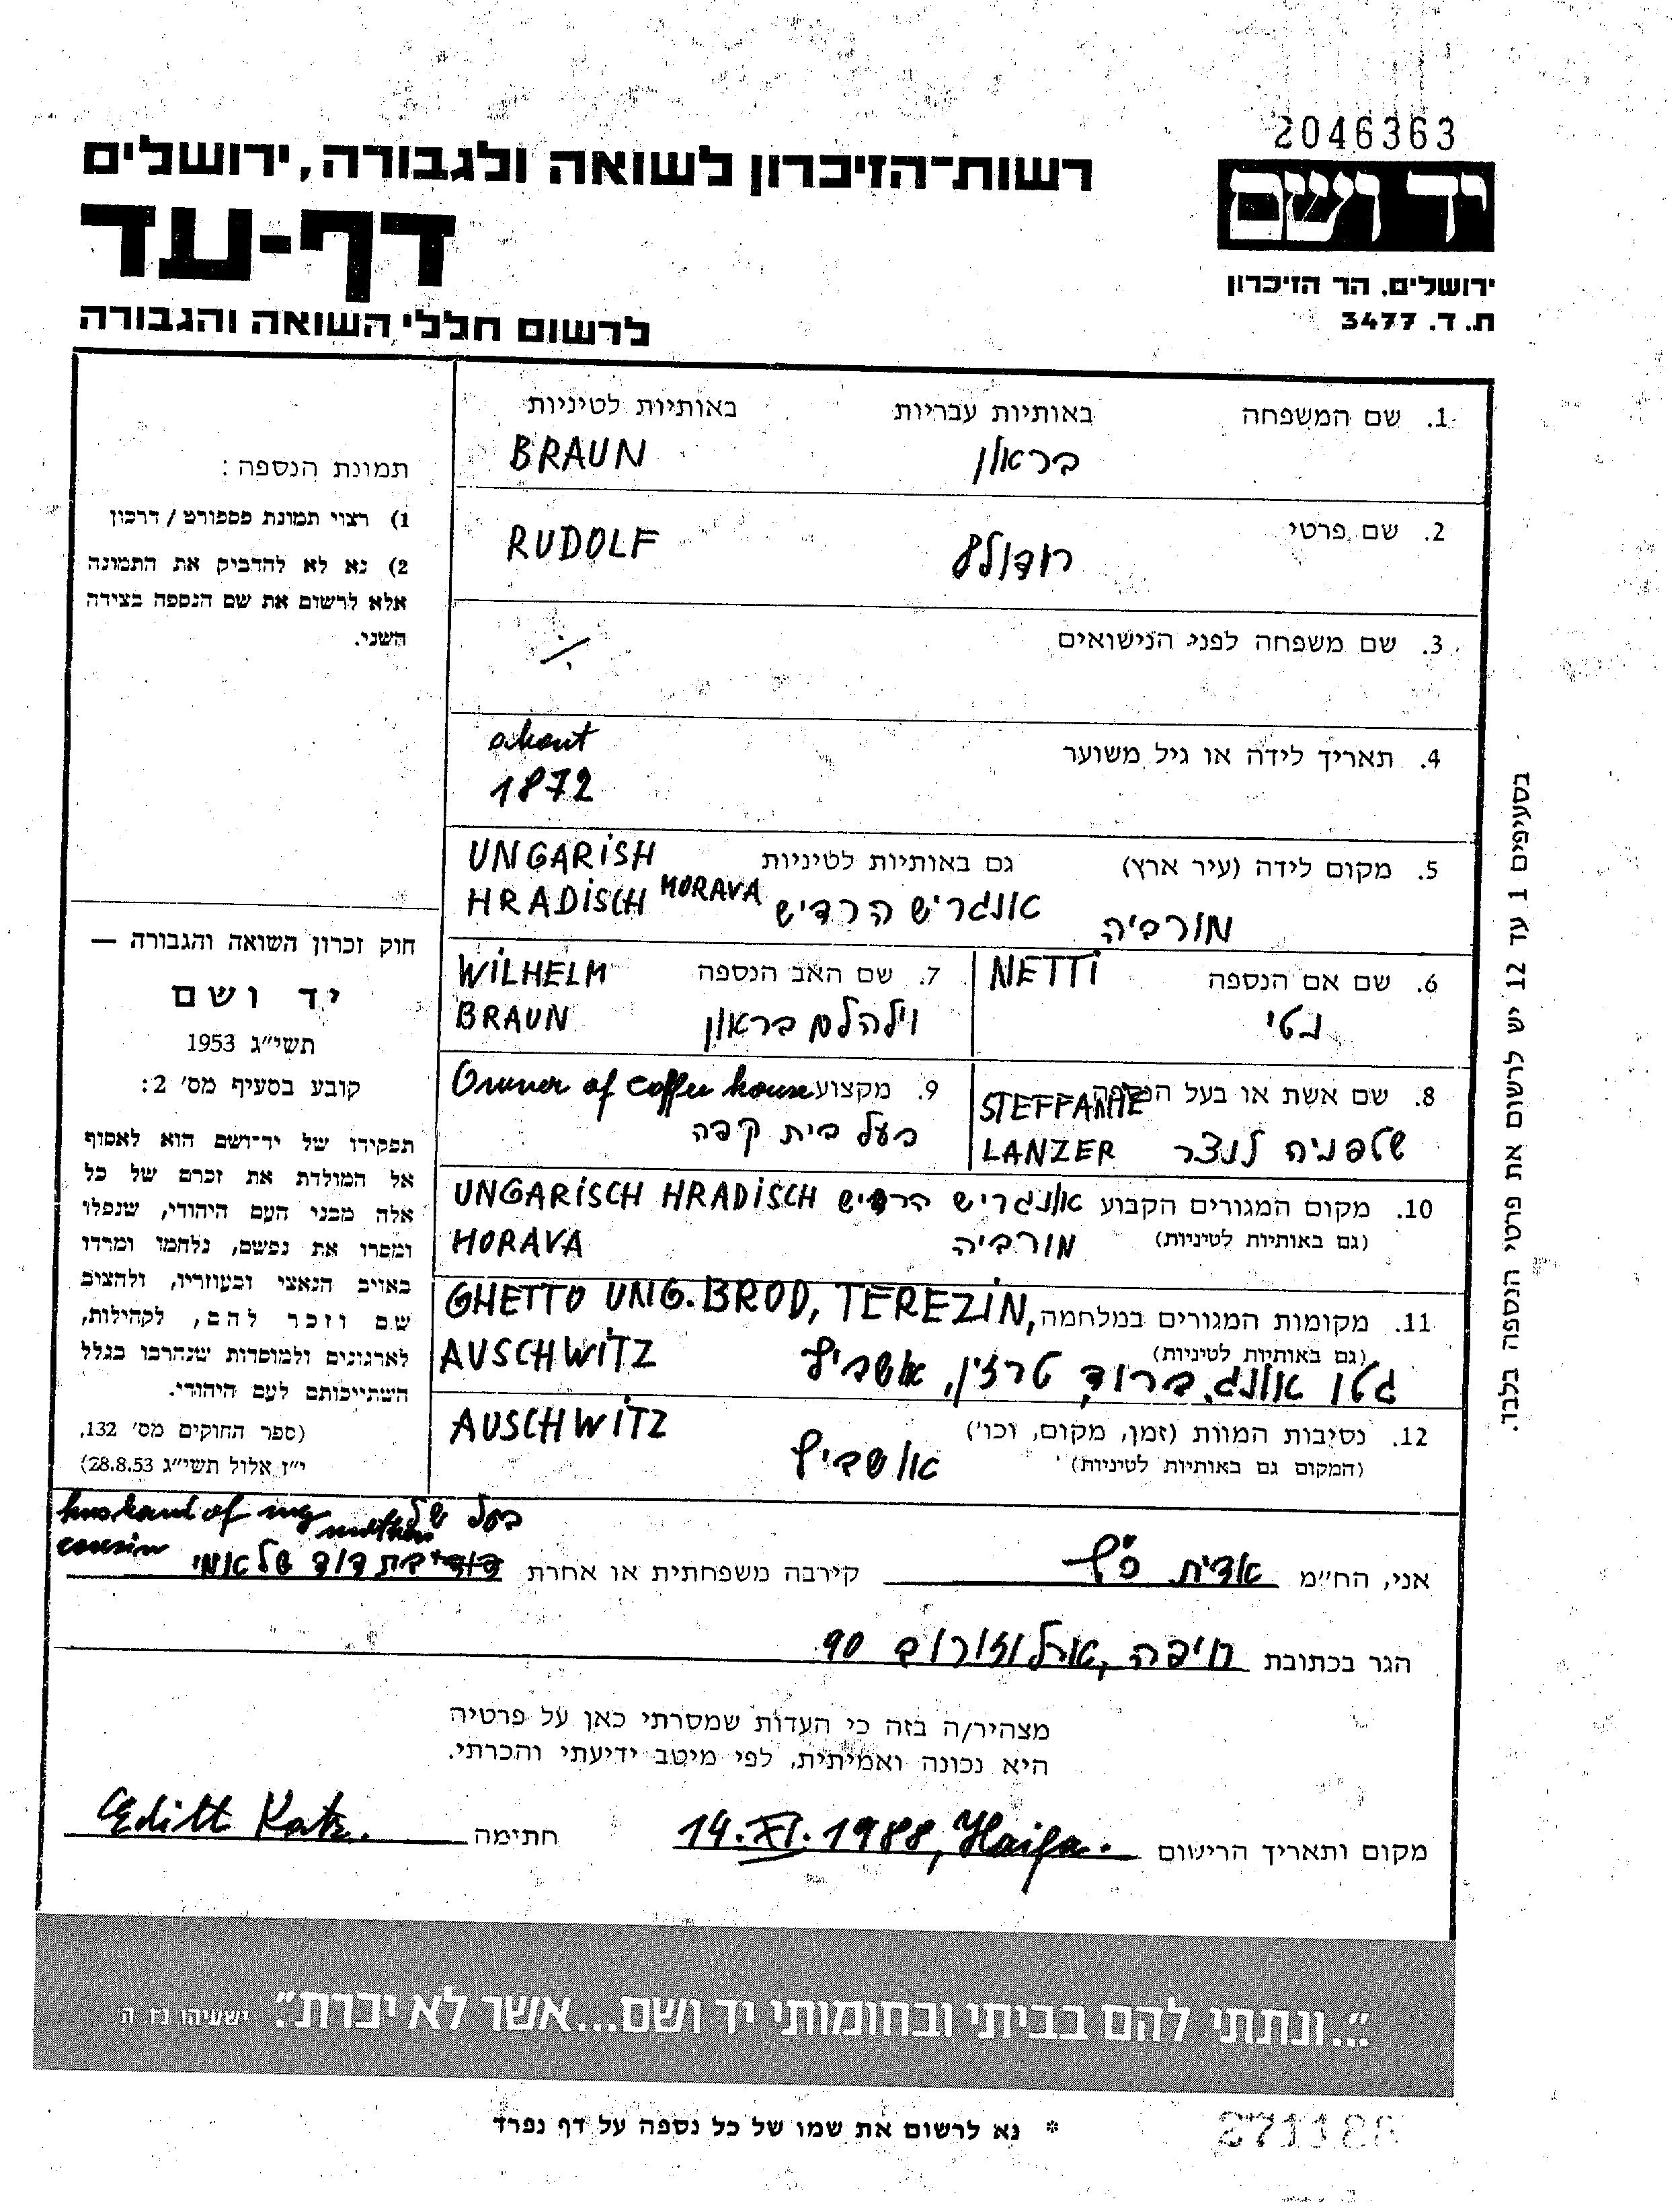 2046363
יד ושם
רשות-הזיכרון לשואה ולגבורה, ירושלים
דף-עד
ירושלים, הר הזיכרון
ת. ד. 3477
לרשום חללי השואה והגבורה
1. שם המשפחה באותיות עבריות באותיות לטיניות
בראון BRAUN
2. שם פרטי
רודולף RUDOLF
3. שם משפחה לפני הנישואים
4. תאריך לידה או גיל משוער
about
1872
5. מקום לידה (עיר ארץ) גם באותיות לטיניות UNGARISH
מורביה אונגריש הרדיש HRADISCH MORAVA
6. שם אם הנספה NETTI
נטי
7. שם האב הנספה WILHELM
וילהלם בראון BRAUN
8. שם אשת או בעל הנספה STEFFANIE
שטפניה לנצר LANZER
9. מקצוע Owner of coffee house
בעל בית קפה
10. מקום המגורים הקבוע אונגריש הרדיש UNGARISCH HRADISCH
(גם באותיות לטיניות) מורביה MORAVA
11. מקומות המגורים במלחמה GHETTO UNG. BROD, TEREZIN,
(גם באותיות לטיניות) AUSCHWITZ
גטו אונג. ברוד, טרזין, אושביץ
12. נסיבות המוות (זמן, מקום, וכו') AUSCHWITZ
(המקום גם באותיות לטיניות) אושביץ
תמונת הנספה:
1) רצוי תמונת פספורט / דרכון
2) נא לא להדביק את התמונה
אלא לרשום את שם הנספה בצידה
השני.
חוק זכרון השואה והגבורה —
יד ושם
תשי״ג 1953
קובע בסעיף מס' 2:
תפקידו של יד-ושם הוא לאסוף
אל המולדת את זכרם של כל
אלה מבני העם היהודי, שנפלו
ומסרו את נפשם, נלחמו ומרדו
באויב הנאצי ובעוזריו, ולהציב
שם וזכר להם, לקהילות,
לארגונים ולמוסדות שנהרבו בגלל
השתייכותם לעם היהודי.
(ספר החוקים מס' 132,
י״ז אלול תשי״ג 28.8.53)
בסעיפים 1 עד 12 יש לרשום את פרטי הנספה בלבד.
husband of my mothers בעל של
cousin
אני, הח״מ אדית כ״ץ קירבה משפחתית או אחרת בת דוד של אמי
הגר בכתובת חיפה, ארלוזורוב 90
מצהיר/ה בזה כי העדות שמסרתי כאן על פרטיה
היא נכונה ואמיתית, לפי מיטב ידיעתי והכרתי.
מקום ותאריך הרישום 14.XI.1988, Haifa. חתימה Edith Katz.
"...ונתתי להם בביתי ובחומותי יד ושם...אשר לא יכרת". ישעיהו נז, ה
* נא לרשום את שמו של כל נספה על דף נפרד